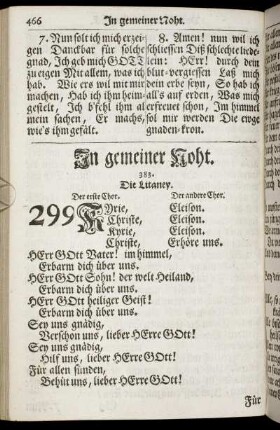 466 In gemeiner Noht.
7. Nun solt ich mich erzei-
gen Danckbar für solche
gnad, Ich geb mich GOTT
zu eigen Mit allem, was ich
hab. Wie ers wil mit mir
machen, Hab ich ihm heim-
gestelt, Ich b'fehl ihm al
mein sachen, Er machs,
wie's ihm gefält.
8. Amen! nun wil ich
schliessen Diß schlechte liede-
lein: HErr! durch dein
blut-vergiessen Laß mich
dein erbe seyn, So hab ich
all's auf erden, Was mich
erfreuet schon, Im himmel
sol mir werden Die ewge
gnaden-kron.
In gemeiner Noht.
388.
Die Litaney.
Der erste Chor. Der andere Chor.
299 KYrie, Eleison.
Christe, Eleison.
Kyrie, Eleison.
Christe, Erhöre uns.
HErr GOtt Vater! im himmel,
Erbarm dich über uns.
HErr GOtt Sohn! der welt Heiland,
Erbarm dich über uns.
HErr GOtt heiliger Geist!
Erbarm dich über uns.
Sey uns gnädig,
Verschon uns, lieber HErre GOtt!
Sey uns gnädig,
Hilf uns, lieber HErre GOtt!
Für allen sünden,
Behüt uns, lieber HErre GOtt!
Für